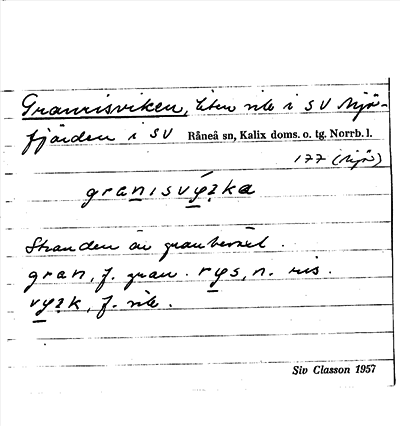 Granrisviken, liten vik i SV Mjö-
fjärden i SV Råneå sn, Kalix doms. o. tg. Norrb. l.
177 (Mjö)
granisvyzka
Stranden är granbevuxet.
gran, f. gran. rys, n. ris.
vyzk, f. vik.
Siv Classon 1957